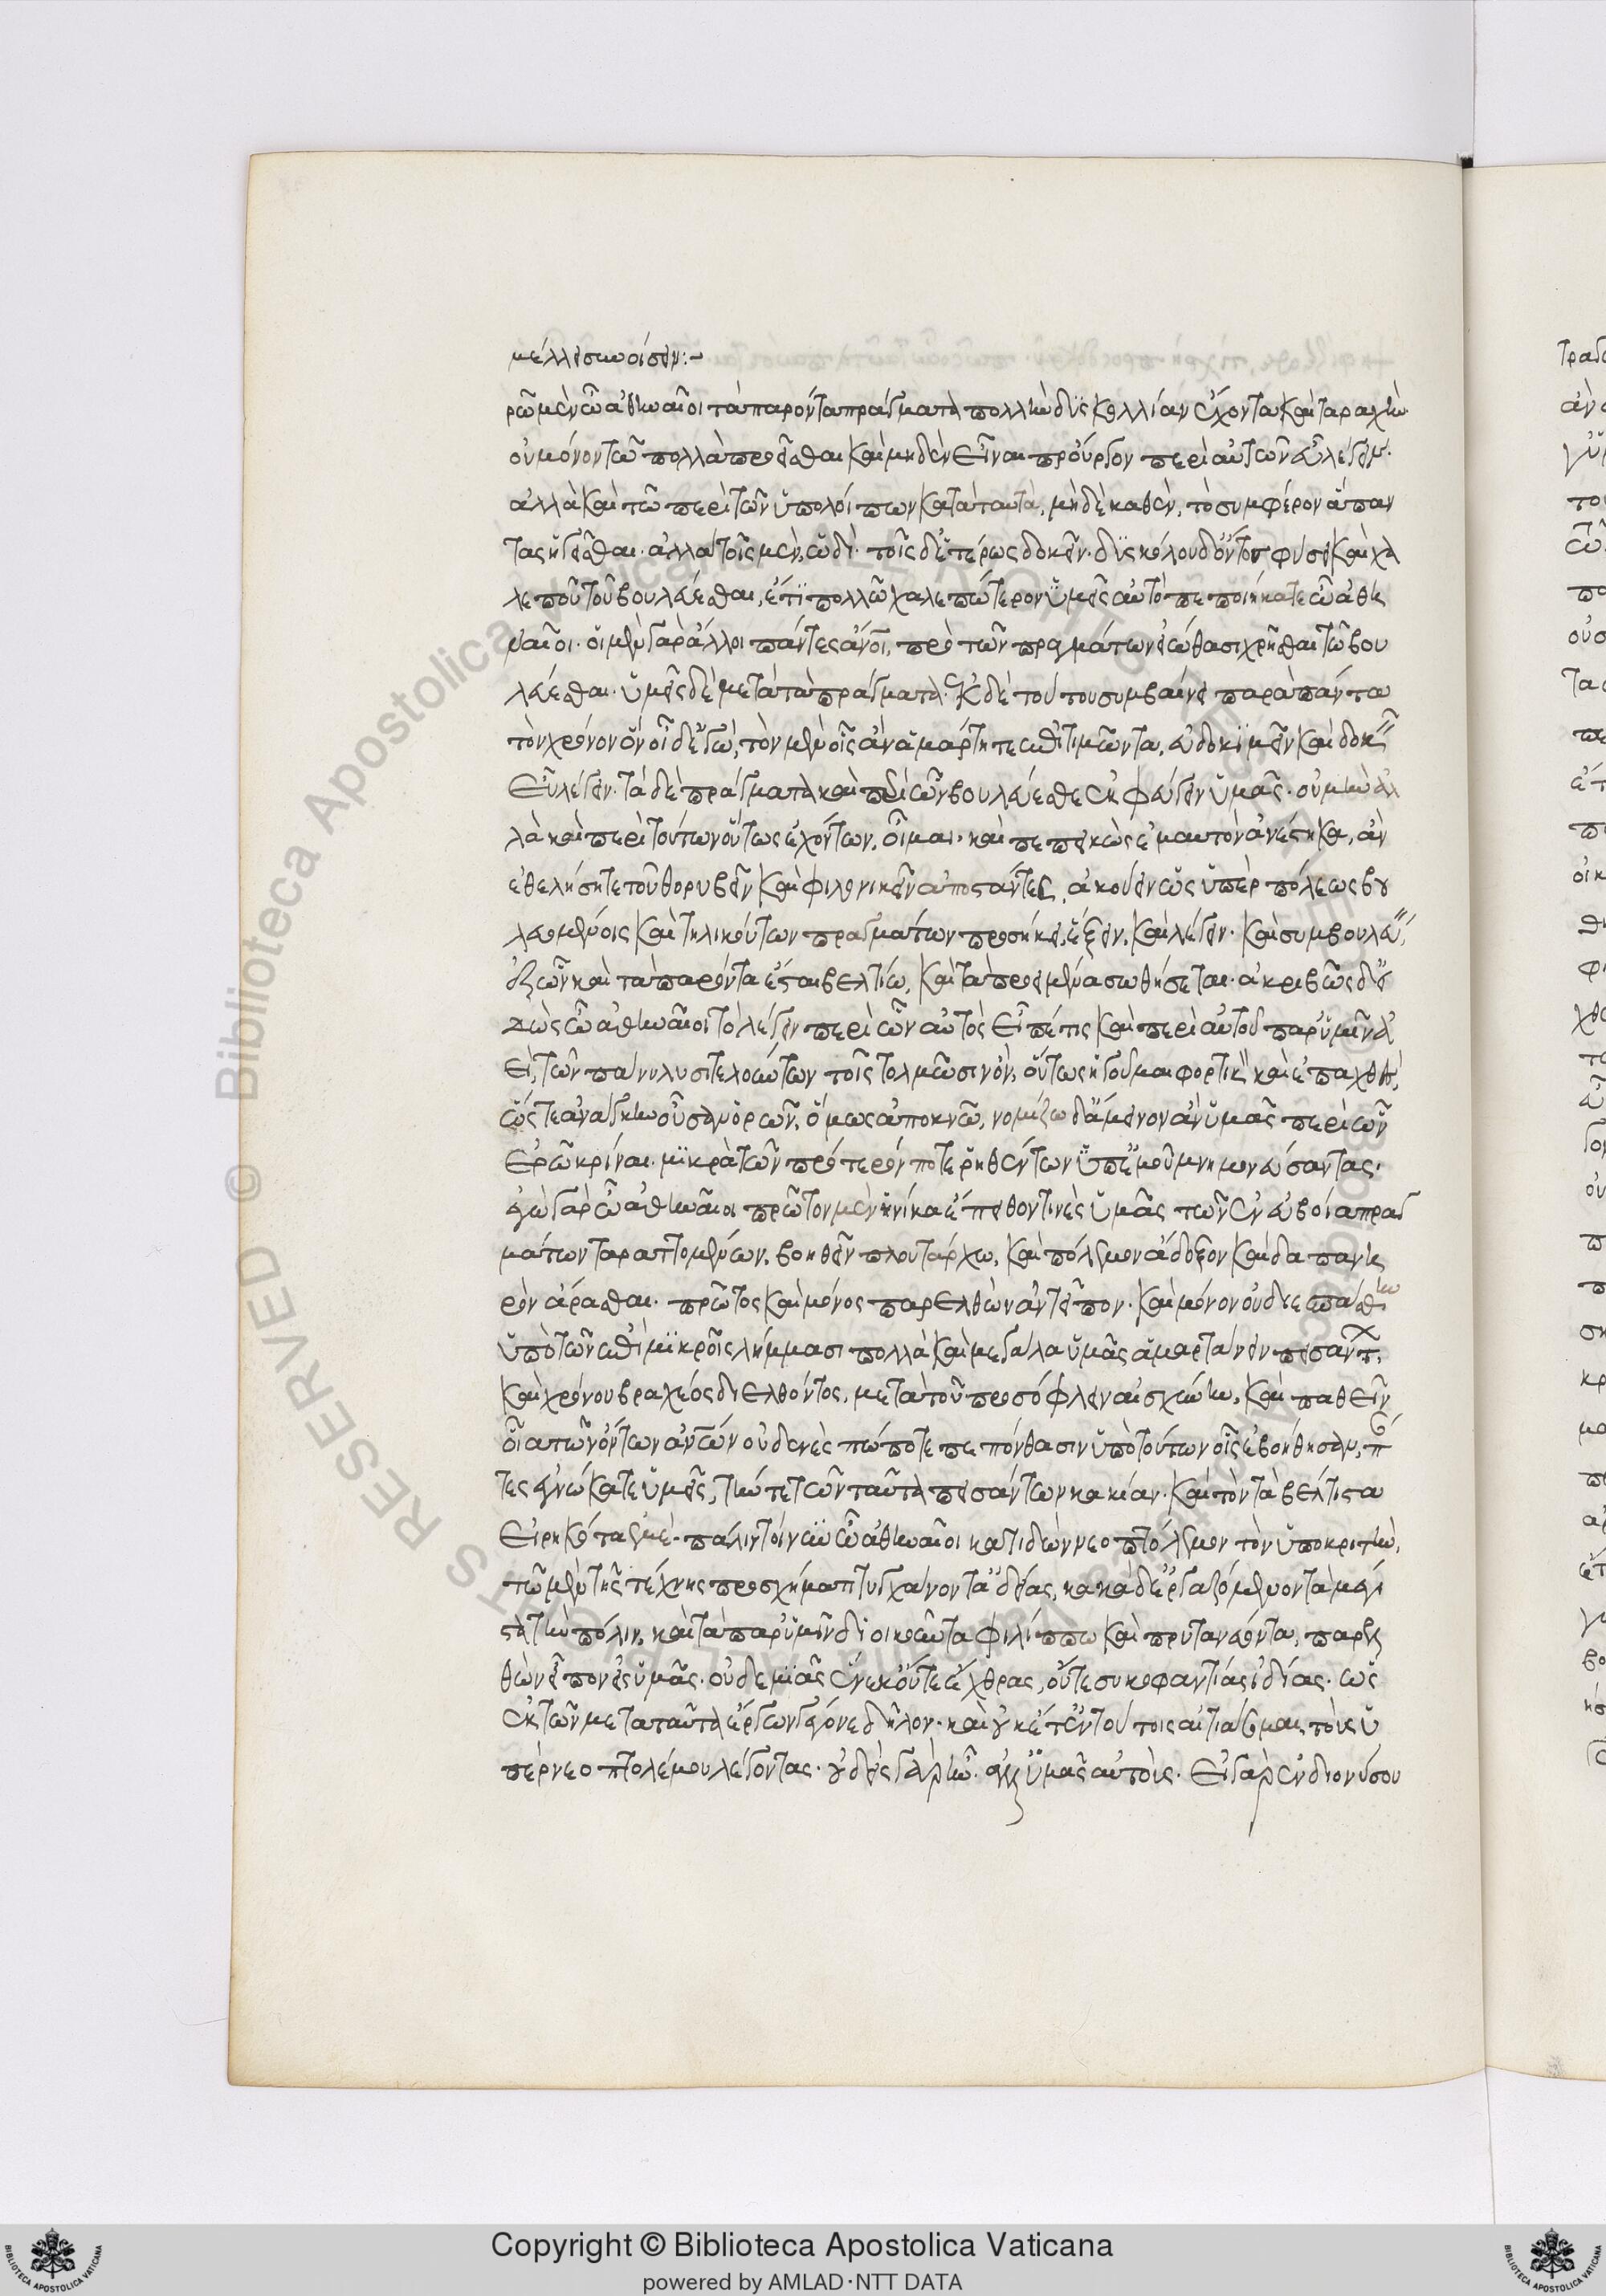 μέλλει συνοίσειν:~
ρῶ μὲν ὦ ἀθηναῖοι τὰ παρόντα πράγματα πολλὴν δυσκολίαν ἔχοντα καὶ ταραχὴν.
οὐ μόνον τῶ πολλὰ προεῖσθαι καὶ μηδὲν εἶναι προὔργον περὶ αὐτῶν εὖ λέγειν.
ἀλλὰ καὶ τῶ περὶ τῶν ὑπολοίπων κατὰ ταυτὰ, μὴδὲ καθὲν, τὸ συμφέρον ἅπαν
τας ἡγεῖσθαι. ἀλλὰ τοῖς μὲν, ὡδὶ. τοῖς δ' ἑτέρως δοκεῖν. δυσκόλου δ' ὄντος φύσει καὶ χα
λεποῦ τοῦ βουλεύεσθαι, ἔτι πολλῶ χαλεπώτερον ὑμεῖς αὐτὸ πεποιήκατε ὦ ἀθη
ναῖοι. οἱ μὲν γὰρ ἄλλοι πάντες ἄνοι, πρὸ τῶν πραγμάτων εἰώθασι χρῆσθαι τῶ βου
λεύεσθαι. ὑμεῖς δὲ μετὰ τὰ πράγματα. ἐκ δὲ τούτου συμβαίνει παρὰ πάντα
τὸν χρόνον ὃν οἶδ' ἐγὼ, τὸν μὲν οἷς ἂν ἁμάρτητε ἐπιτιμῶντα, εὐδοκιμεῖν καὶ δοκεῖν
εὖ λέγειν. τὰ δὲ πράγματα καὶ περὶ ὧν βουλεύεσθε ἐκφεύγειν ὑμᾶς. οὐ μὴν ἀλ
λὰ καὶ περὶ τούτων οὕτως ἐχόντων, οἶμαι. καὶ πεπεικὼς ἐμαυτὸν ἀνέστηκα, ἂν
ἐθελήσητε τοῦ θορυβεῖν καὶ φιλονικεῖν ἀποστάντες, ἀκούειν ὡς ὑπὲρ πόλεως βου
λευομένοις καὶ τηλικούτων πραγμάτων προσήκει, ἕξειν, καὶ λέγειν. καὶ συμβουλεύειν,
δι' ὧν καὶ τὰ παρόντα ἔσται βελτίω, καὶ τὰ προειμένα σωθήσεται. ἀκριβῶς δ' εἰ
δὼς ὦ ἀθηναῖοι τὸ λέγειν περὶ ὧν αὐτὸς εἶπέ τις καὶ περὶ αὐτοῦ παρ' ὑμῖν ἀ
εὶ, τῶν πάνυ λυσιτελούντων τοῖς τολμῶσιν ὂν, οὕτως ἡγοῦμαι φορτικὸν καὶ ἐπαχθὲς,
ὥστε ἀνάγκην οὖσαν ὁρῶν, ὅμως ἀποκνῶ, νομίζω δ' ἄμεινον ἂν ὑμᾶς περὶ ὧν
ἐρῶ κρίναι. μικρὰ τῶν πρότερόν ποτε ῥηθέντων ὑπ' ἐμοῦ μνημονεύσαντας.
ἐγὼ γὰρ ὦ ἀθηναῖοι πρῶτον μὲν ἡνίκα ἔπειθον τινὲς ὑμᾶς τῶν ἐν εὐβοία πραγ
μάτων ταραττομένων, βοηθεῖν πλουτάρχω, καὶ πόλεμον ἄδοξον καὶ δαπανη
ρὸν ἄρασθαι. πρῶτος καὶ μόνος παρελθὼν ἀντεῖπον. καὶ μόνον οὐ διεσπάσθην
ὑπὸ τῶν ἐπὶ μικροῖς λήμμασι πολλὰ καὶ μεγάλα ὑμᾶς ἁμαρτάνειν πεισάντ.
καὶ χρόνου βραχέος διελθόντος, μετὰ τοῦ προσόφλειν αἰσχύνην, καὶ παθεῖν
οἷα τῶν ὄντων ἀνων οὐδένες πώποτε πεπόνθασιν ὑπὸ τούτων οἷς ἐβοήθησαν, πάν
τες ἔγνωκατε ὑμεῖς, τήν τε τῶν ταῦτα πεισάντων κακίαν. καὶ τὸν τὰ βέλτιστα
εἰρηκότα ἐμὲ. πάλιν τοίνυν ὦ ἀθηναῖοι κατιδὼν νεοπτόλεμον τὸν ὑποκριτὴν,
τῶ μὲν τῆς τέχνης προσχήματι τυγχάνοντα ἀδείας, κακὰ δ' ἐργαζόμενον τὰ μέγι
στα τὴν πόλιν, καὶ τὰ παρ' ὑμῶν διοικοῦντα φιλίππω καὶ πρυτανεύοντα, παρελ
θὼν εἶπον εἰς ὑμᾶς. οὐδεμιᾶς ἕνεκ' οὔτε ἔχθρας, οὔτε συκοφαντίας ἰδίας. ὡς
ἐκ τῶν μετὰ ταῦτα ἔργων γέγονε δῆλον. καὶ οὐκέτ' ἐν τούτοις αἰτιάσομαι τοὺς ὑ
πὲρ νεοπτολέμου λέγοντας. οὐδεὶς γὰρ ἦν. ἀλλ' ὑμᾶς αὐτοὺς. εἰ γὰρ ἐν διονύσου